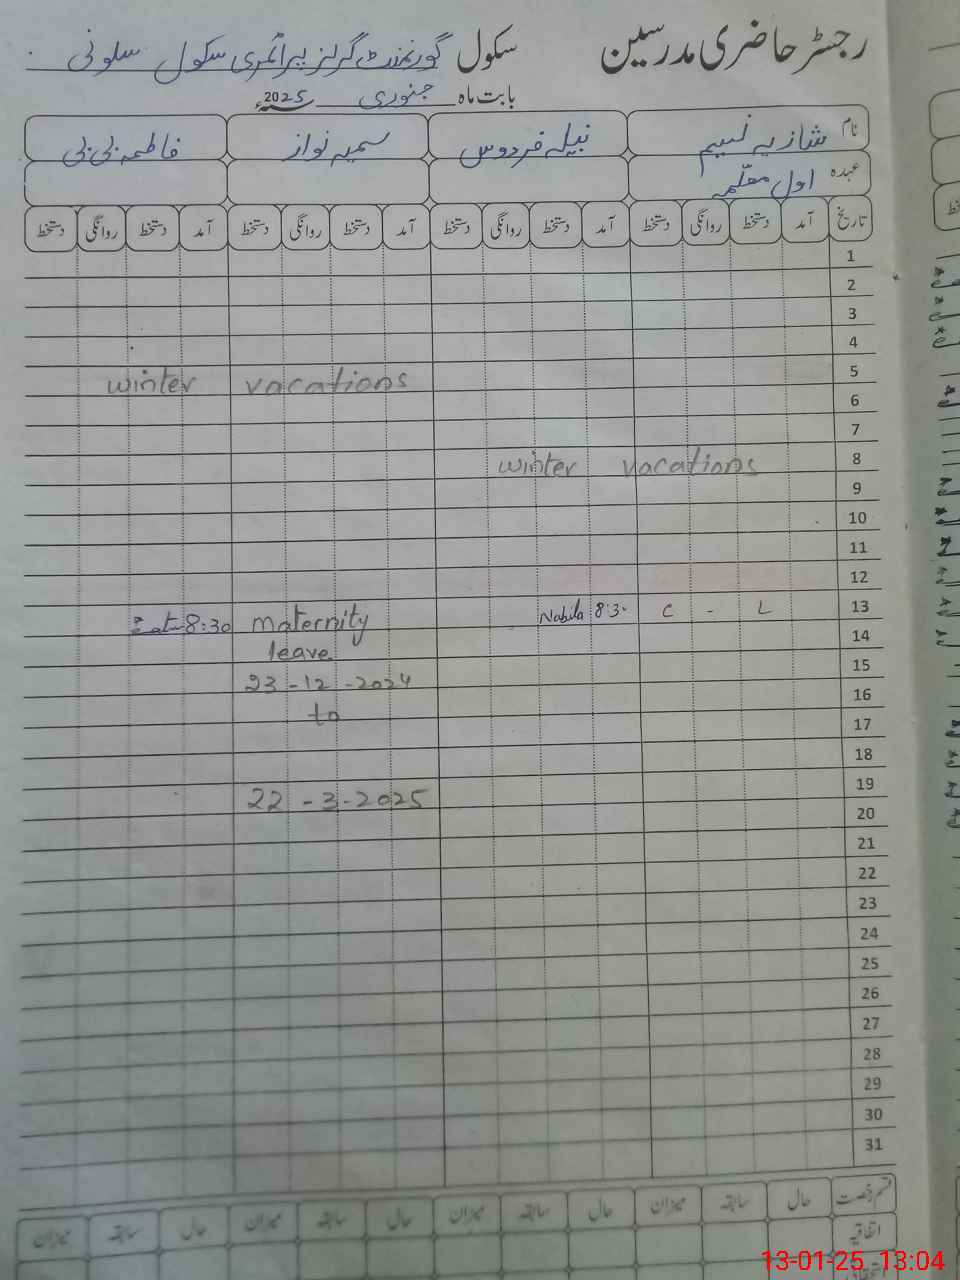 رجسٹر حاضری مدرسین سکول گورنمنٹ گرلز پرائمری سکول سلونی
بابت ماہ جنوری 2025ء
نام شازیہ نسیم نبیلہ فردوس سمیہ نواز فاطمہ بی بی
عہدہ اول معلمہ
تاریخ آمد دستخط روانگی دستخط آمد دستخط روانگی دستخط آمد دستخط روانگی دستخط آمد دستخط روانگی دستخط
1
2
3
4
5
winter vacations
6
7
8
winter vacations
9
10
11
12
13
C - L
Nabila 8:30
maternity
8:30
14
leave
15
23-12-2024
16
to
17
18
19
22-3-2025
20
21
22
23
24
25
26
27
28
29
30
31
قسم رخصت حال سابقہ میزان حال سابقہ میزان حال سابقہ میزان حال سابقہ میزان
اتفاقیہ
13-01-25 13:04